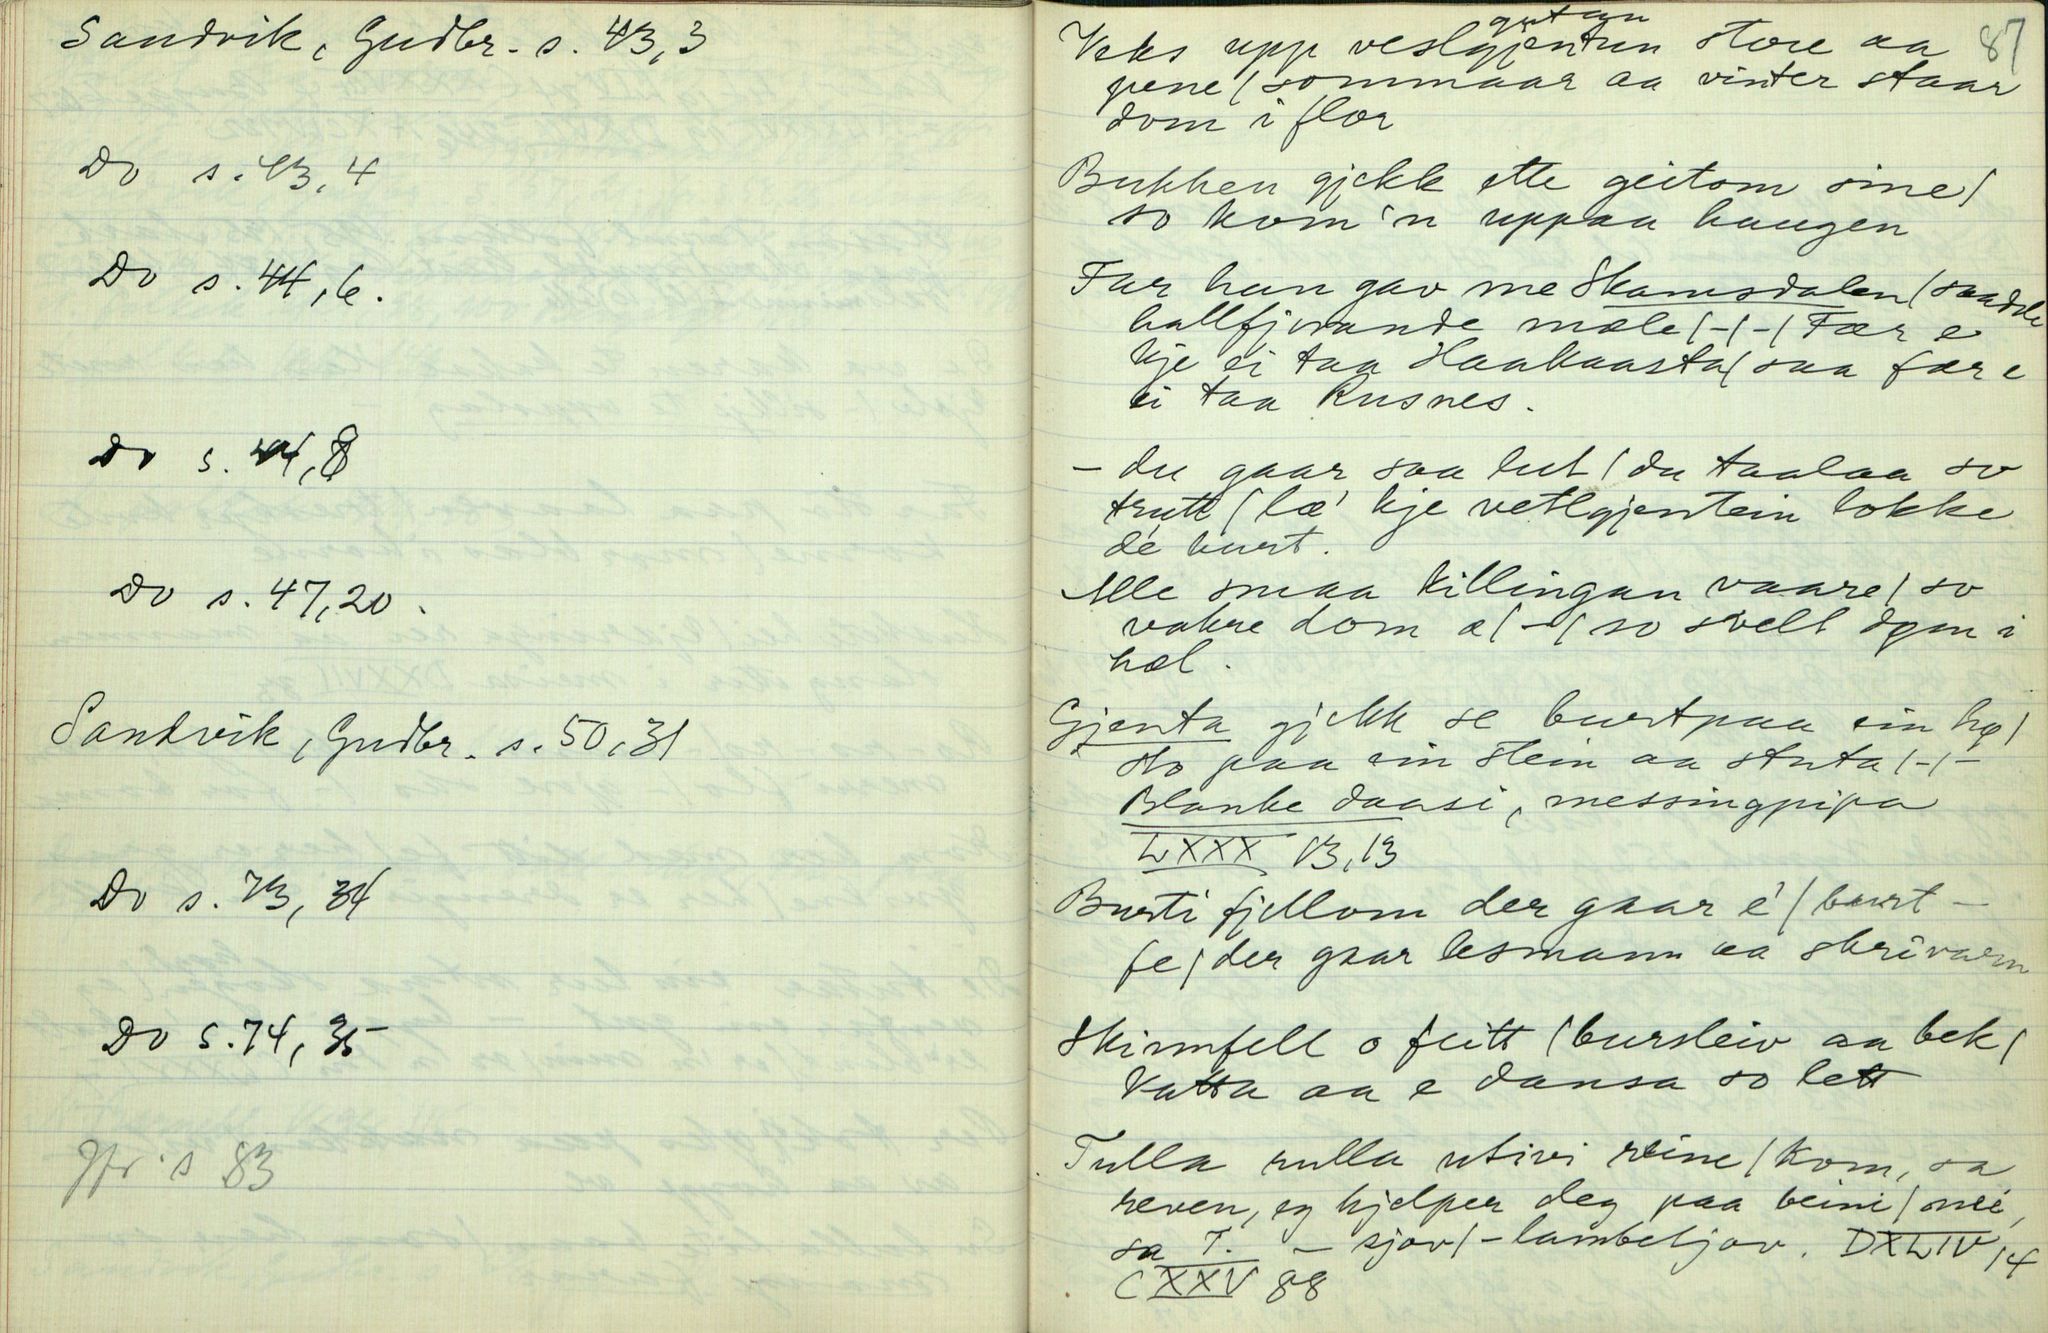 Sandvik, Gudbr. s. 43,3
Do s. 43,4
Do s. 44,6.
Do s. 44,8
Do s. 47,20.
Sandvik, Gudbr. s. 50,31
Do s. 73, 34
Do s. 74, 35
Jfr. s 83
87
gutan
Veks upp veslgjentun store aa
pene / sommaar aa vinter staar
dom i flor
Bukken gjekk ette geitom sine /
so kom'n uppaa haugen
Far han gav me Skamsdalen / saadde
hallfjorande mæle /-/-/ Fær e
kje ei taa Haakaasta / saa fær e
ei taa Rusnes.
- du gaar saa lut / du taalaa so
trutt / læ' kje vetlgjentein lokke
dé burt.
Alle smaa killingan vaare / so
vakre dom æ /-/ so svelt dom i
hæl.
Gjenta gjekk se burtpaa ein hø /
sto paa ein stein aa stuta /-/-
Blanke daasi, messingpipa
LXXX 13,13
Burti fjellom der gaar é / burt -
fe / der gaar lesmann aa skrivarn
Skinnfell o feitt / bursleiv aa bek /
Katta aa e dansa so lett
Tulla rulla utivi reine / Kom, sa
reven, eg hjelper deg paa beini / nei,
sa T. - sjov / - lambeljov. DXLIV, 14
CXXV 88